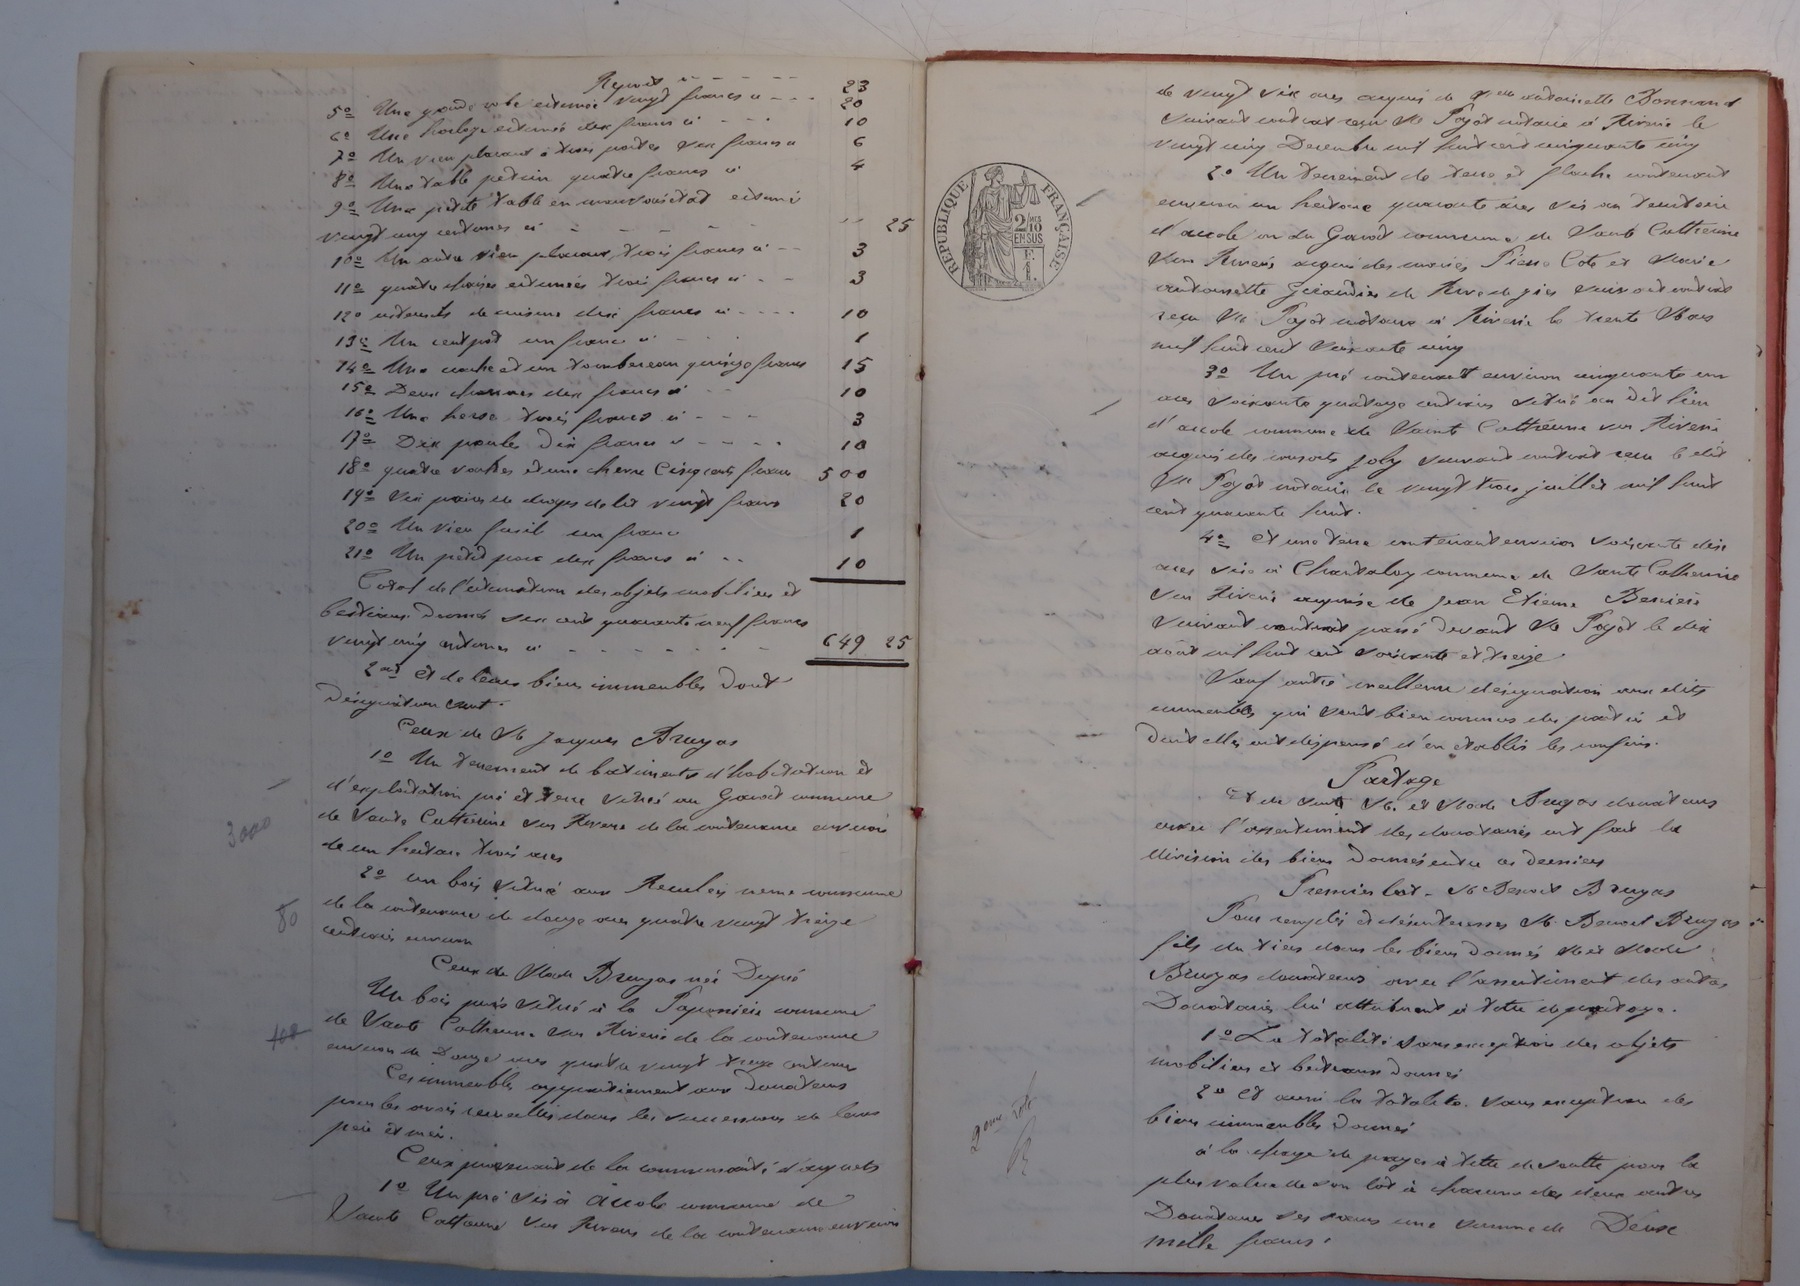 Report " - - - - 23
5º Une garde robe estimée vingt francs ci - - - 20
6º Une horloge estimée dix francs ci - - - 10
7º Un vieu placard à trois portes six francs ci 6
8º Une table petrin quatre francs ci 4
9º Une petite table en mauvais état estimé
vingt cinq centimes ci - - - - - " 25
10º Un autre vieu placard, trois francs ci - - 3
11º quatre chaises estimées trois francs ci - - 3
12º ustensils de cuisine dix francs ci - - - - 10
13º Un un franc ci - - 1
14º Une et un tombereau quinze francs 15
15º Deux charrues dix francs ci - - 10
16º Une herse trois francs ci - - - 3
17º Dix poule Dix francs ci - - - - 10
18º quatre vaches et une chevre Cinq cents francs 500
19º Six paires de draps de lit vingt francs 20
20º Un vieu fusil un franc 1
21º Un petit porc dix francs ci - - 10
Total de l'estimation des objets mobiliers et
bestiaux donnés six cent quarante neuf francs
vingt cinq centimes ci - - - - - - - 649 25
2ent Et de leurs biens immeubles dont
désignation suit.
Ceux de Mr Jacques Bruyas
1º Un tenement de batiments d'habitation et
d'exploitation pré et terre situé au Gavot commune
de Sainte Catherine sur Riverie de la contenance environ
de un hectare trois ares
3000
2º un bois situé aux même commune
de la contenance de douze ares quatre vingt treize
centiares environ
80
Ceux de Made Bruyas née Dupré
Un bois situé à la commune
de Sainte Catherine sur Riverie de la contenance
environ de Douze ares quatre vingt treize centiares
400
Ces immeubles appartiennent aux Donateurs
pour les avoir recueillis dans les successions de leurs
père et mère.
Ceux provenant de la communauté d'acquets
1º Un pré sis à accole commune de
Sainte Catherine sur Riverie de la contenance environ
de vingt six ares acquis de Antoinette
suivant contrat reçu Me Pogat notaire à Riverie le
vingt cinq Decembre mil huit cent cinquante cinq
2º Un tenement de terre et contenant
environ un hectare quarante ares sis au territoire
d'accole ou du Gavot commune de Sainte Catherine
sur Riverie acquis des mariés Pierre Cote et Marie
antoinette de Rive de gier suivant contrat
reçu Me Pogat notaire à Riverie le trente Mars
mil huit cent soixante cinq
3º Un pré contenant environ cinquante un
ares soixante quatorze centiares situé au dit lieu
d'accole commune de Sainte Catherine sur Riverie
acquis des consorts Joly suivant contrat reçu le dit
Me Pogat notaire le vingt trois juillet mil huit
cent quarante huit.
4º Et une terre contenant environ soixante dix
ares sise à Chantaloy commune de Sainte Catherine
sur Riverie acquise de Jean Etienne
suivant contrat passé devant Me Pogat le dix
août mil huit cent soixante et treize
Sauf autre meilleure désignation aux dits
immeubles qui sont bien connus des parties et
dont elles ont dispensé d'en établir les confins.
Partage
Et de suite Mr et Made Bruyas donateurs
avec l'assentiment des donataires ont fait la
division des biens donnés entre ces derniers
Premier lot - Mr Benoit Bruyas
Pour remplir et désinteresser Mr Benoit Bruyas
fils du tiers dans les biens donnés Mr et Made
Bruyas donateurs avec l'assentiment des autres
Donataires lui attribuent à titre de partage.
1º La totalité sans exception des objets
mobiliers et bestiaux donnés
2º Et aussi la totalité sans exception des
biens immeubles donnés
à la charge de payer à titre de soulte pour la
plus value de son lot à chacune des deux autres
Donataires ses sœurs une somme de Deux
mille francs.
RÉPUBLIQUE FRANÇAISE
2/10 EN SUS
2eme role